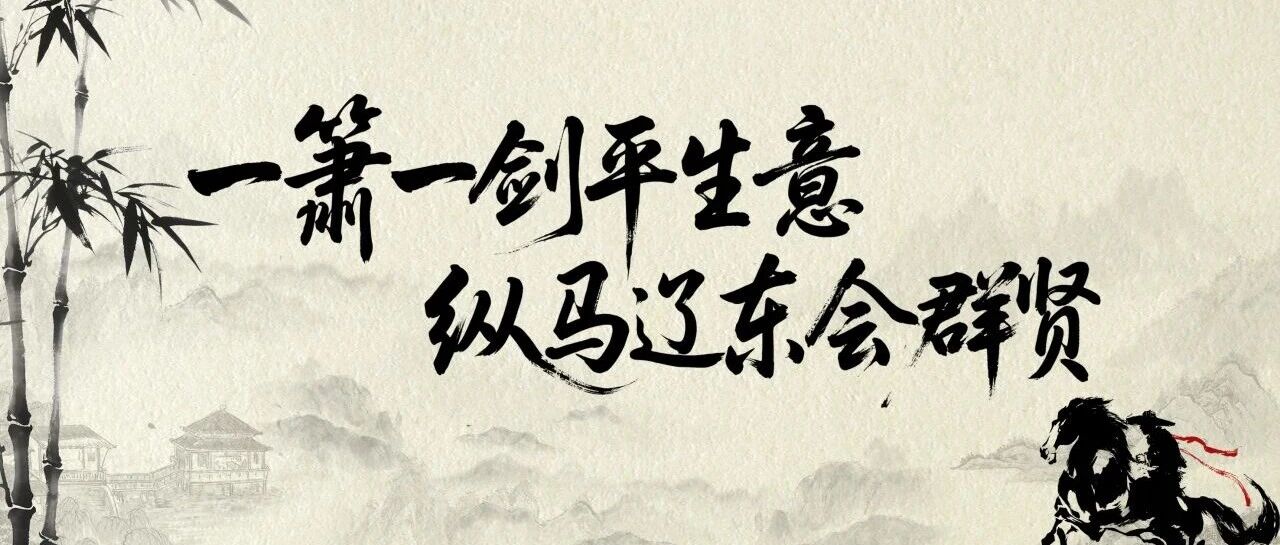 一箫一剑平生意
纵马辽东会群贤